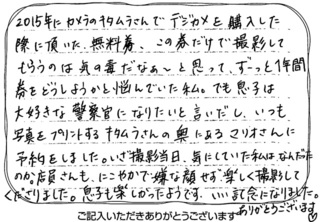 2015年にカメラのキタムラさんでデジカメを購入した
際に頂いた、無料券、この券だけで撮影して
もらうのは気の毒だなぁ〜と思って、ずーっと1年間
券をどうしようかと悩んでいた私。でも息子は
大好きな警察官になりたいと言いだし、いつも
写真をプリントするキタムラさんの奥にあるマリオさんに
予約をしました。いざ撮影当日、気にしていた私はなんだった
のか。店員さんも、にこやかで嫌な顔せず、楽しく撮影して
くださりました。息子も楽しかったようです。いい記念になりました。
ありがとうございます
ご記入いただきありがとうございます